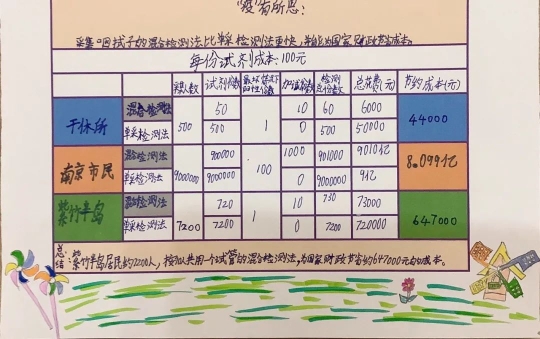 "疫"有所思:
采集"因拭子的混合检测法比单采检测法更快,并能为国家财政节约成本。
每份试剂成本:100元
采人数 试剂份数 最坏情况下阳性份数 加试份数 检测总份数 总花费(元) 节约成本(元)
干休所 混合检测法 50 10 60 6000
单采检测法 500 500 1 0 500 50000 44000
南京市民 混合检测法 900000 1000 901000 9010万
单采检测法 9000000 9000000 100 0 9000000 9亿 8.099亿
紫竹半岛 混合检测法 720 10 730 73000
单采检测法 7200 7200 1 0 7200 720000 647000
总结: 紫竹半岛居民约7200人,按10人共用一个试管的混合检测法,为国家财政节省约647000元的成本。